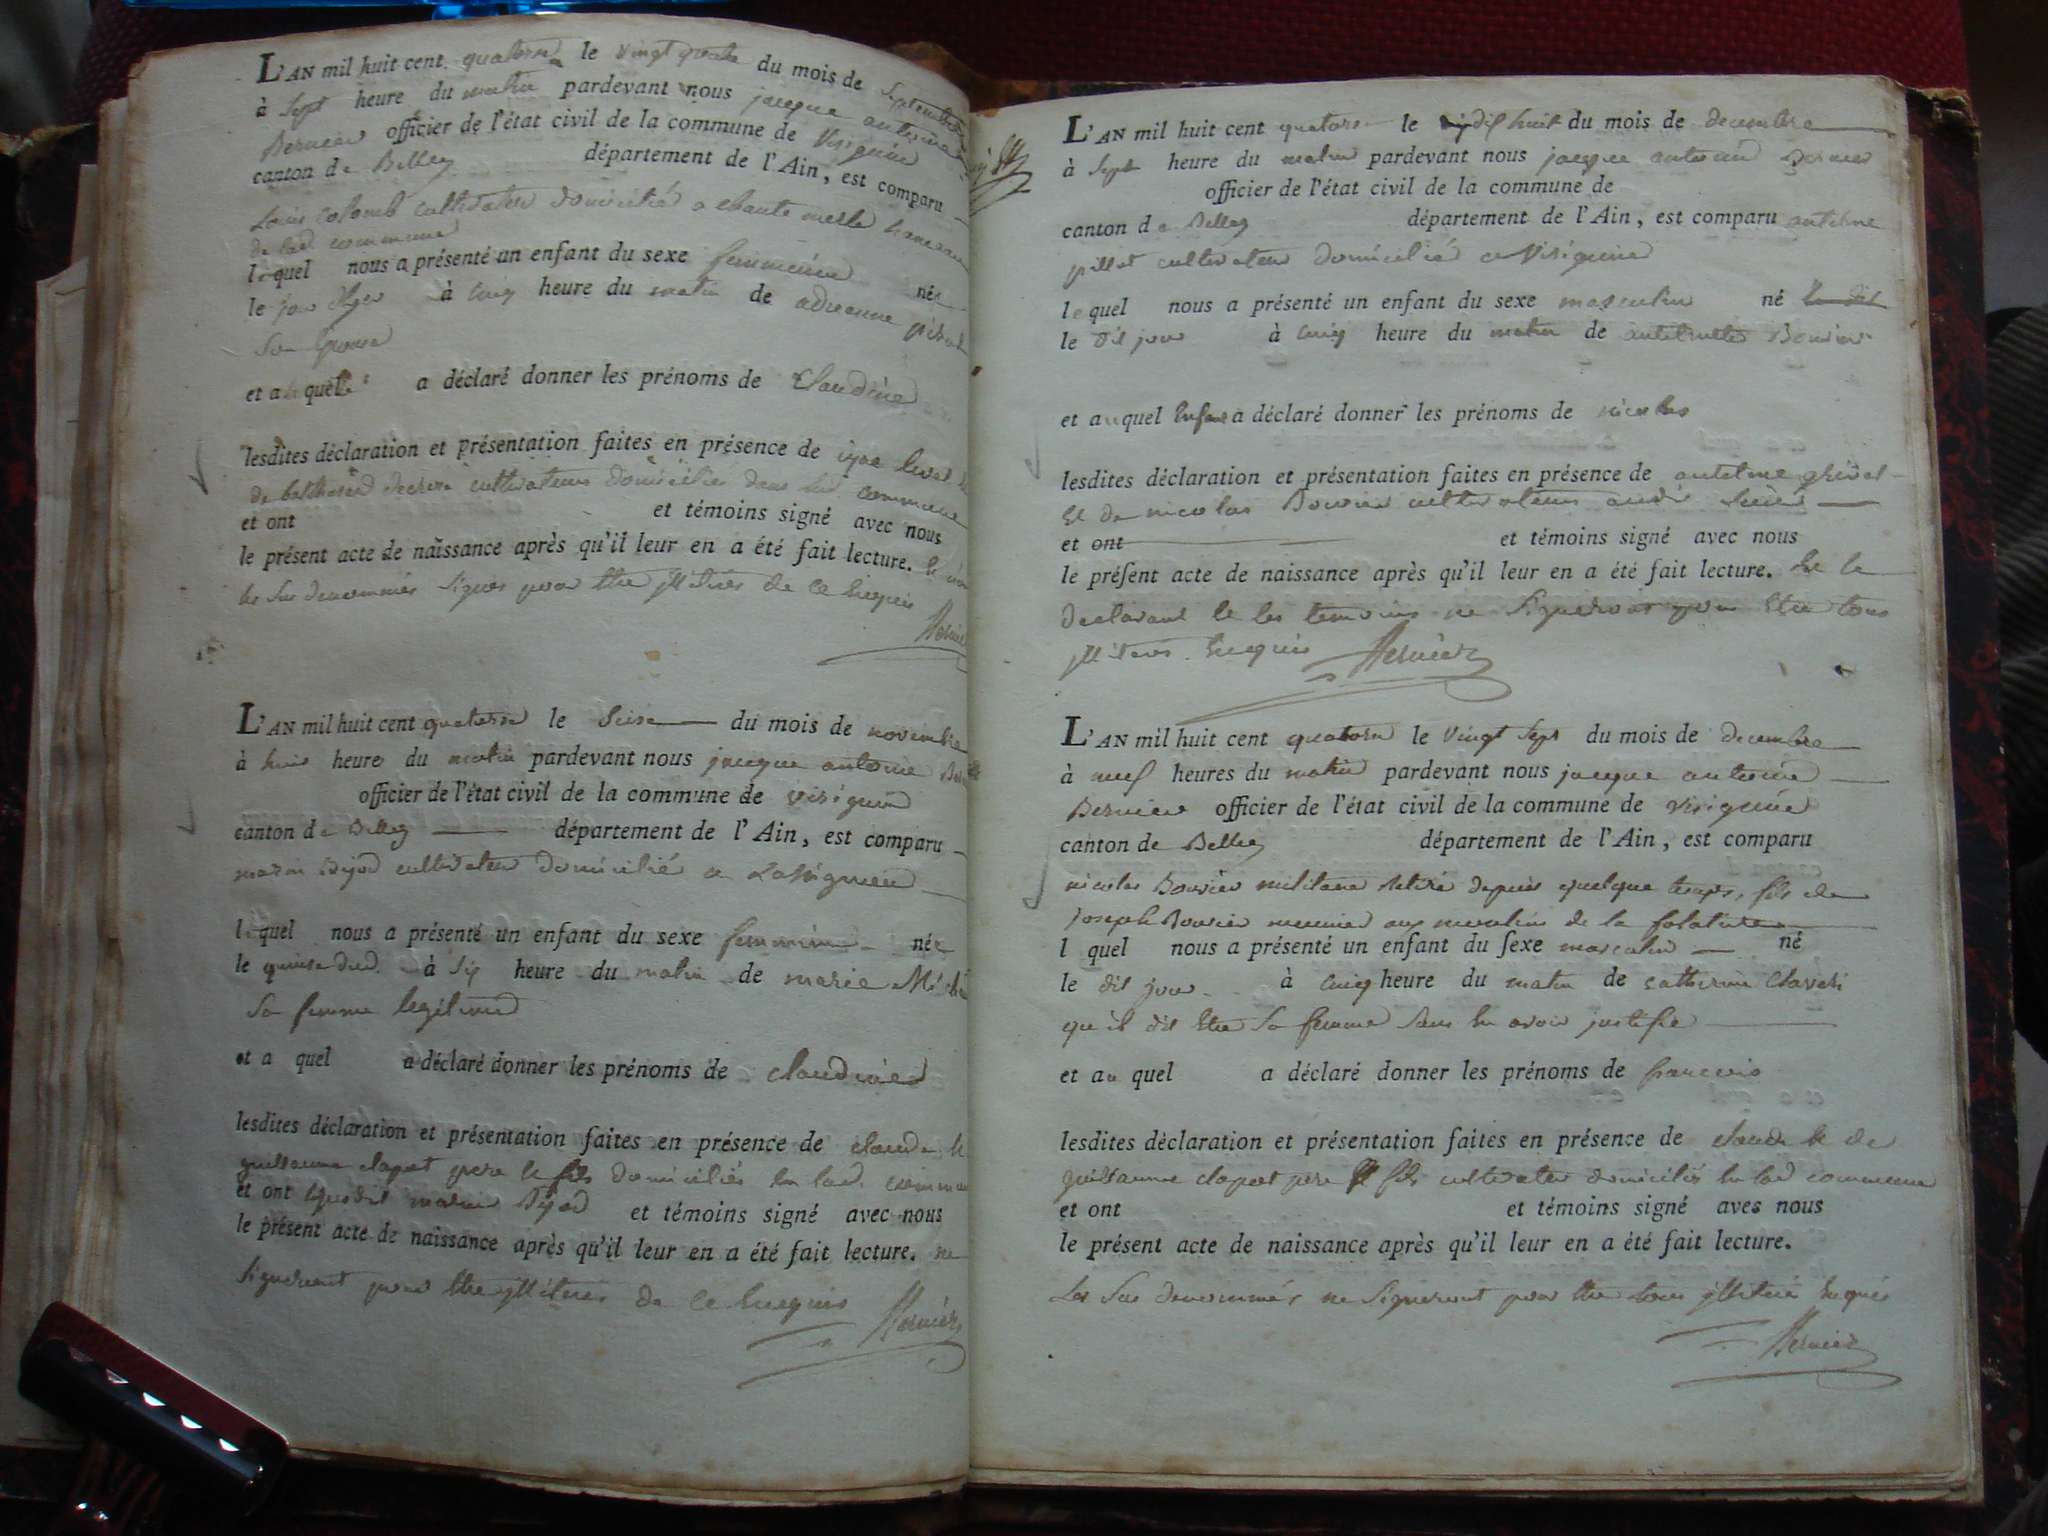 L'AN mil huit cent quatorse le vingt quatre du mois de Septembre
à Sept heure du matin pardevant nous jacque antoine
Bernier officier de l'état civil de la commune de Virignin
canton de Belley département de l'Ain, est comparu
Louis colomb cultivateur domicilié a
de lad. commune
lequel nous a présenté un enfant du sexe femminin née
le jour à cinq heure du matin de adrienne
Son Epouse
et a quel a déclaré donner les prénoms de Claudine
lesdites déclaration et présentation faites en présence de
de cultivateurs domiciliés dans lad. commune
et ont et témoins signé avec nous
le présent acte de naissance après qu'il leur en a été fait lecture.
les Sus denommés Signer pour Etre jllitérés de ce Enquis
Bernier
L'AN mil huit cent quatorse le Seise du mois de novembre
à huit heure du matin pardevant nous jacque antoine
officier de l'état civil de la commune de virignin
canton de Belley département de l'Ain, est comparu
cultivateur domicilié a
lequel nous a présenté un enfant du sexe femminin née
le quinse dud. à Six heure du matin de marie
Sa femme legitime
et a quel a déclaré donner les prénoms de claudine
lesdites déclaration et présentation faites en présence de claude et
guillaume clapot pere et fils domiciliés en lad. commune
et ont et témoins signé avec nous
le présent acte de naissance après qu'il leur en a été fait lecture. ne
Signeront pour Etre jllitérés de ce Enquis Bernier
L'AN mil huit cent quatorse le dix huit du mois de decembre
à Sept heure du matin pardevant nous jacque antoine Bernier
officier de l'état civil de la commune de
canton de Belley département de l'Ain, est comparu antelme
pillot cultivateur domicilié a Virignin
lequel nous a présenté un enfant du sexe masculin né
le dit jour à cinq heure du matin de Bouvier
et auquel Enfant a déclaré donner les prénoms de nicolas
lesdites déclaration et présentation faites en présence de antelme
et de nicolas Bouvier cultivateurs aud.
et ont et témoins signé avec nous
le présent acte de naissance après qu'il leur en a été fait lecture. et le
declarant et les temoins ne Signeront pour Etre tous
jllitérés Enquis Bernier
L'AN mil huit cent quatorse le vingt Sept du mois de decembre
à neuf heures du matin pardevant nous jacque antoine
Bernier officier de l'état civil de la commune de virignin
canton de Belley département de l'Ain, est comparu
nicolas Bouvier militaire retiré depuis quelque temps, fils de
joseph Bouvier meunier aux moulins de la
l quel nous a présenté un enfant du sexe masculin né
le dit jour à cinq heure du matin de catherine
qu'il dit Etre Sa femme Sans En avoir justifié
et au quel a déclaré donner les prénoms de francois
lesdites déclaration et présentation faites en présence de claude et de
guillaume clapot pere et fils cultivateurs domiciliés En lad commune
et ont et témoins signé avec nous
le présent acte de naissance après qu'il leur en a été fait lecture.
Les Sus denommés ne Signeront pour Etre tous jllitérés Enquis
Bernier